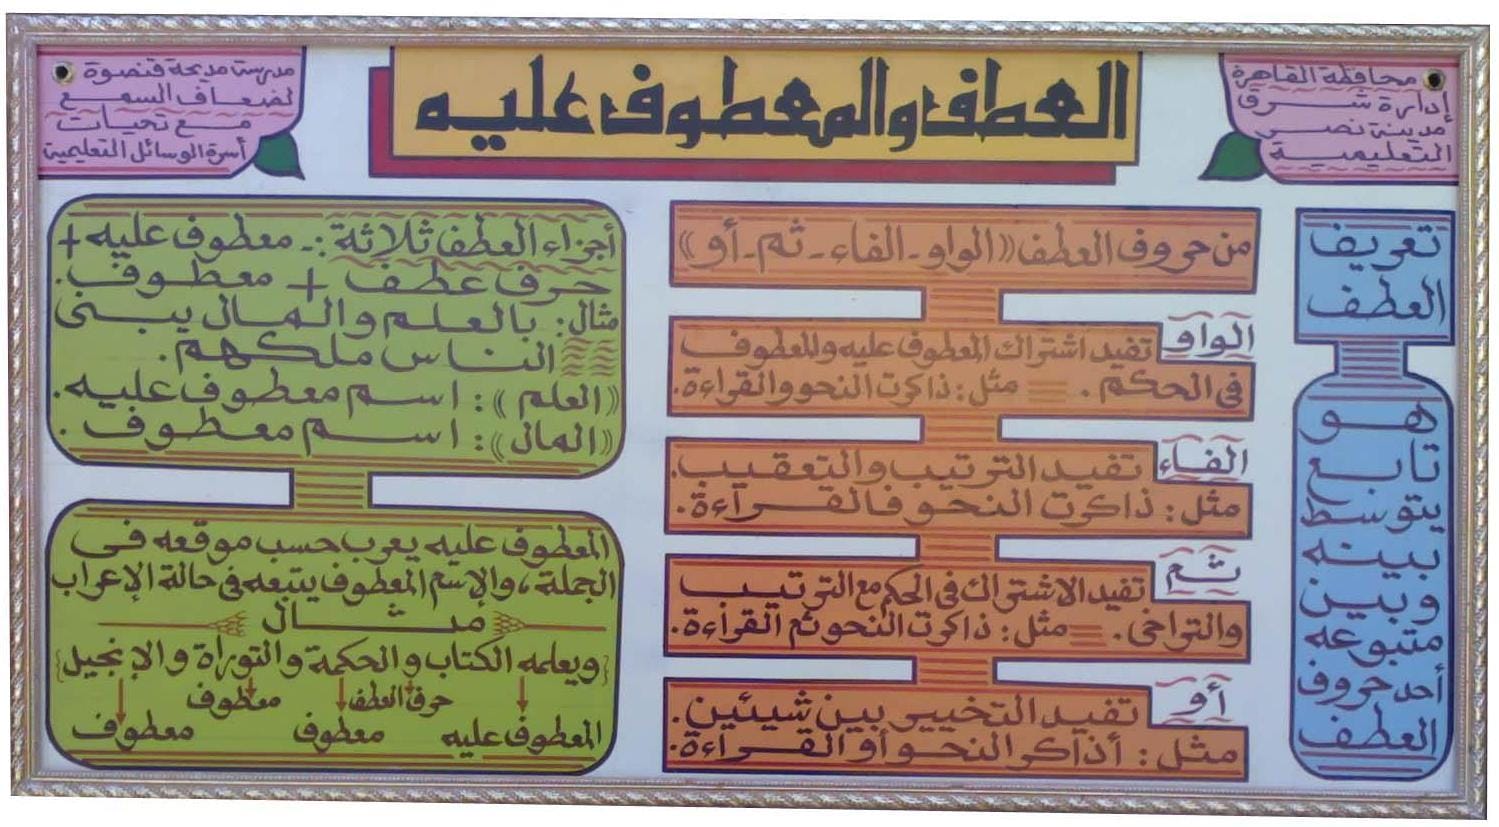 محافظة القاهرة
إدارة شرق
مدينة نصر
التعليمية
العطف والمعطوف عليه
مدرسة مديحة قنصوة
لضعاف السمع
مع تحيات
أسرة الوسائل التعليمية
تعريف
العطف
هو
تابع
يتوسط
بينه
وبين
متبوعه
أحد حروف
العطف
من حروف العطف ((الواو - الفاء - ثم - أو))
الواو تفيد اشتراك المعطوف عليه والمعطوف
فى الحكم . مثل : ذاكرت النحو والقراءة .
الفاء تفيد الترتيب والتعقيب .
مثل : ذاكرت النحو فالقراءة .
ثم تفيد الاشتراك فى الحكم مع الترتيب
والتراخى . مثل : ذاكرت النحو ثم القراءة .
أو تفيد التخيير بين شيئين .
مثل : أذاكر النحو أو القراءة .
أجزاء العطف ثلاثة :- معطوف عليه +
حرف عطف + معطوف .
مثال : بالعلم والمال يبنى
الناس ملكهم .
((العلم)) : اسم معطوف عليه .
((المال)) : اسم معطوف .
المعطوف عليه يعرب حسب موقعه فى
الجملة ، والإسم المعطوف يتبعه فى حالة الإعراب
مثال
{ويعلمه الكتاب والحكمة والتوراة والإنجيل}
حرف العطف معطوف
المعطوف عليه معطوف معطوف